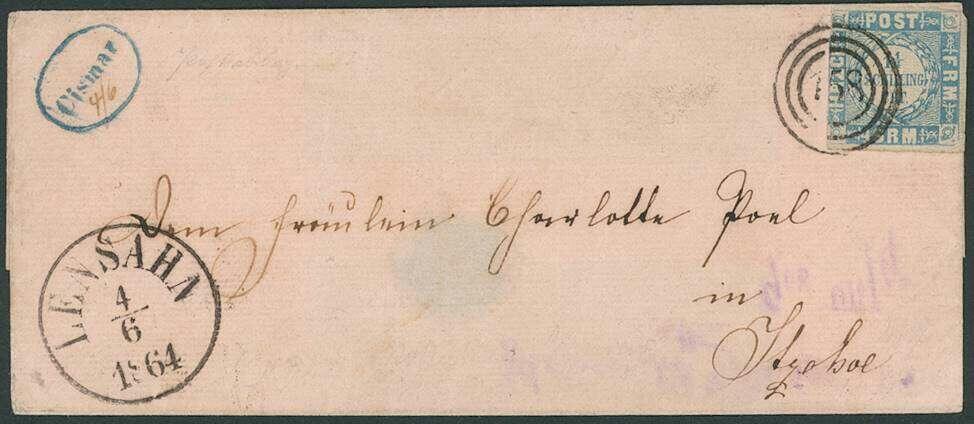 Cismar
4/6
POST
FRM
1¼
SCHILLING
FRM
158
Dem Fräulein Charlotte Poel
in
Itzehoe
LENSAHN
4
6
1864